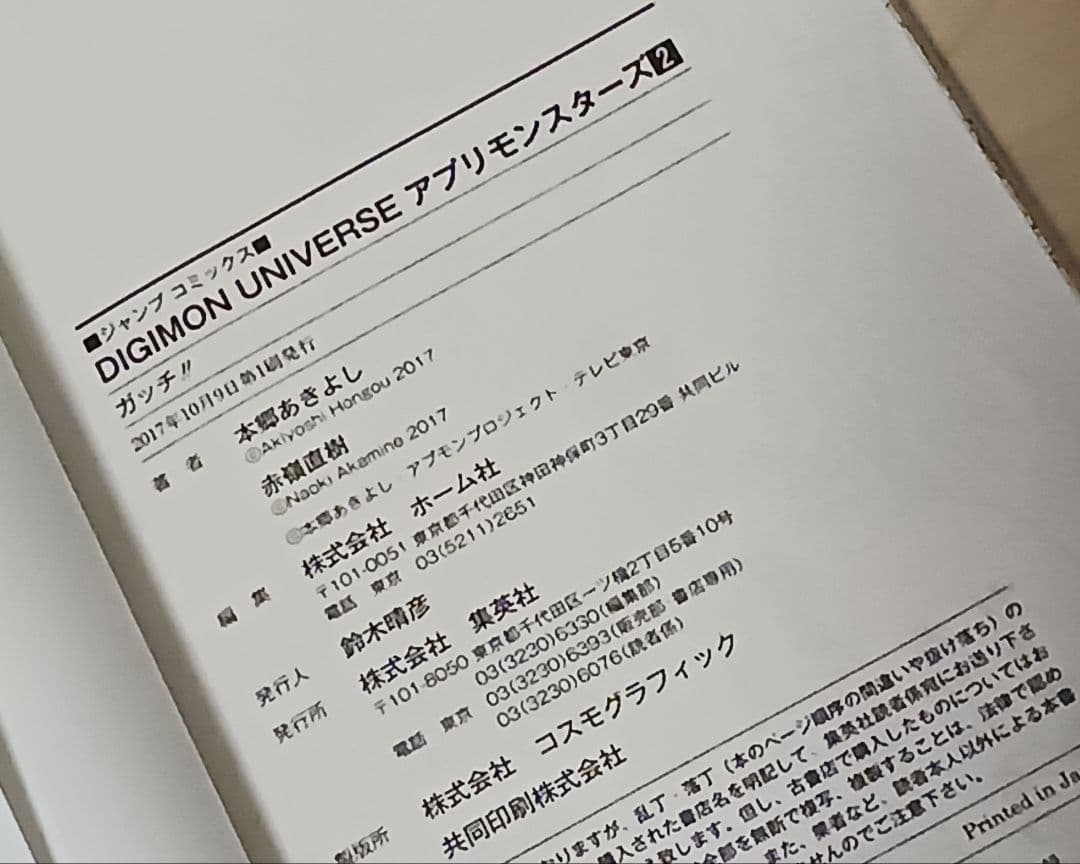 ■ジャンプ コミックス■
DIGIMON UNIVERSE アプリモンスターズ2
ガッチ!!
2017年10月9日 第1刷発行
著 者 本郷あきよし
©Akiyoshi Hongou 2017
赤嶺直樹
©Naoki Akamine 2017
©本郷あきよし アプモンプロジェクト・テレビ東京
編 集 株式会社 ホーム社
〒101-0051 東京都千代田区神田神保町3丁目29番 共同ビル
電話 東京 03(5211)2651
発行人 鈴木晴彦
発行所 株式会社 集英社
〒101-8050 東京都千代田区一ツ橋2丁目5番10号
03(3230)6330(編集部)
電話 東京 03(3230)6393(販売部 書店専用)
03(3230)6076(読者係)
製版所 株式会社 コスモグラフィック
共同印刷株式会社
りますが、乱丁・落丁(本のページ順序の間違いや抜け落ち)の
購入された書店名を明記して、集英社読者係宛にお送り下さ
致します。但し、古書店で購入したものについてはお
全部を無断で複写、複製することは、法律で認め
また、業者など、読者本人以外による本書
せんのでご注意下さい。
Printed in Ja